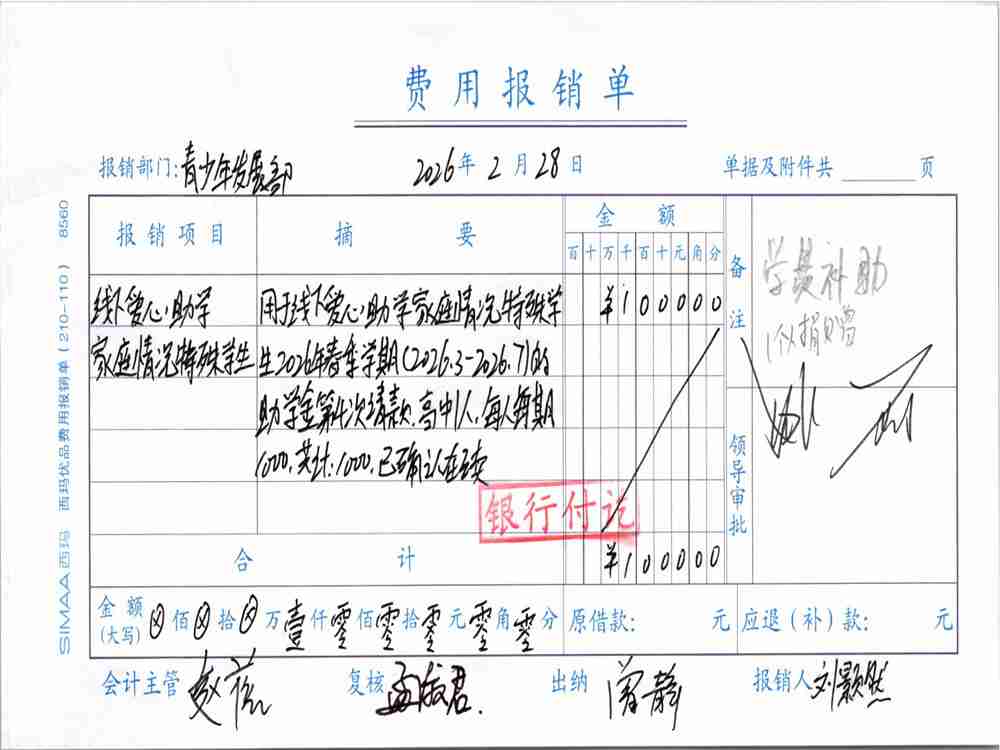 费用报销单
报销部门:青少年发展部 2026年2月28日 单据及附件共 页
报销项目 摘要 金额 备注
百十万千百十元角分
学员补助
线下爱心助学 用于线下爱心助学家庭情况特殊学 ¥100000
家庭情况特殊学生 生2026年春季学期(2026.3-2026.7)的
助学金第4次请款,高中1人,每人每期
1000,共计:1000,已确认在读
领导审批
银行付讫
合计 ¥100000
金额(大写) ⊗佰⊗拾⊗万壹仟零佰零拾零元零角零分 原借款: 元 应退(补)款: 元
会计主管 复核 出纳 曾静 报销人 刘颢然
SIMAA西玛 西玛优品费用报销单(210-110) 8560